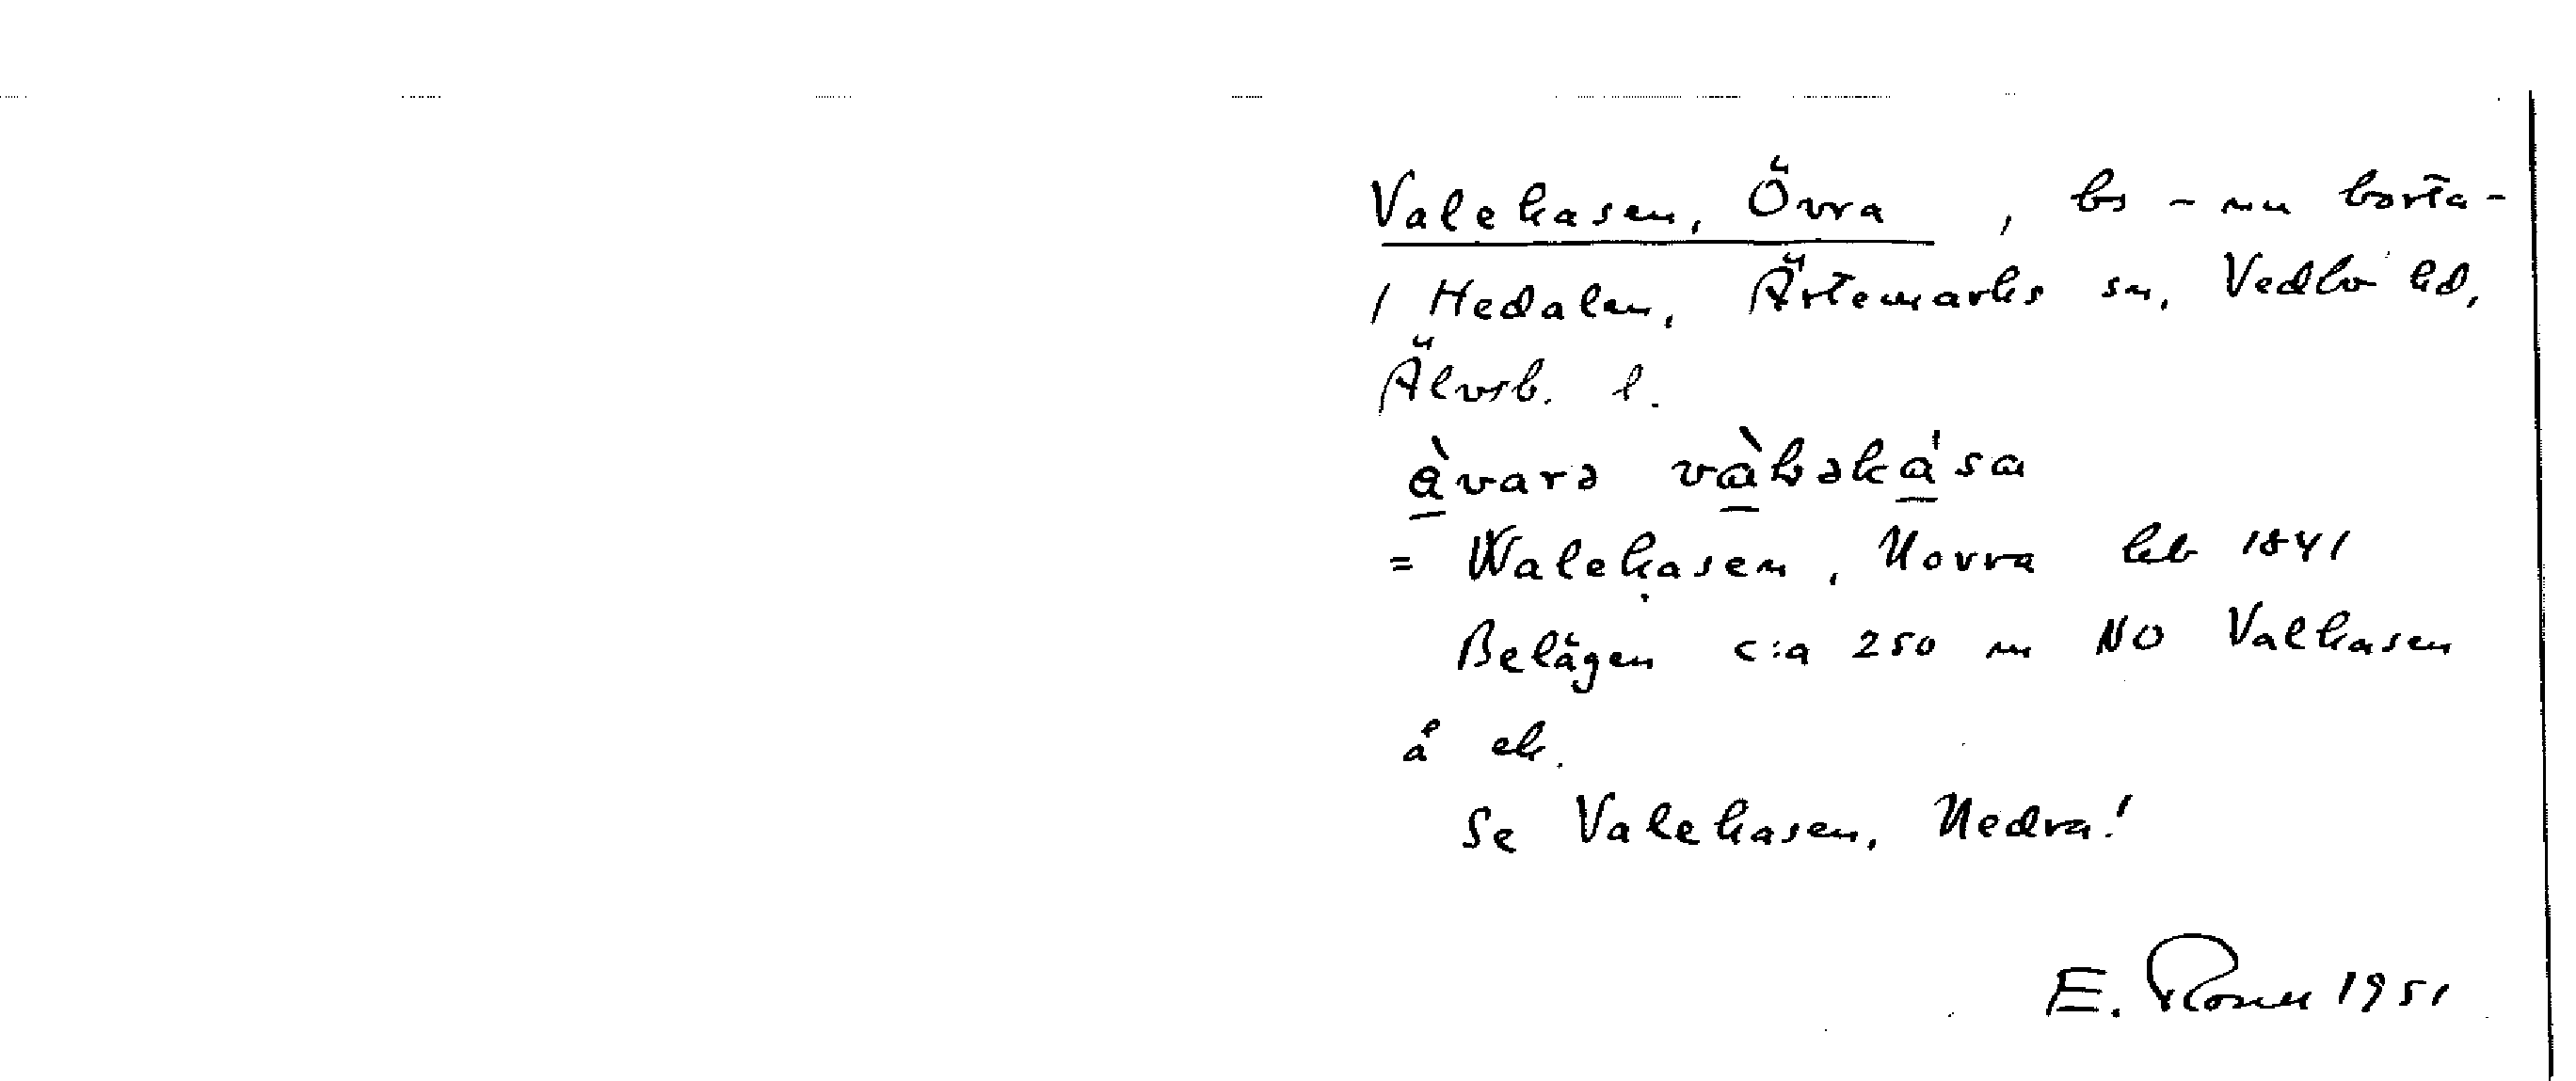 Valekasen, Övra, bs - nu borta -
/ Hedalen, Ärtemarks sn, Vedbo hd,
Älvsb. l.
= Walekasen, Norra hb 1841
Belägen c:a 250 m NO Valkasen
å ek.
Se Valekasen, Nedra!
E. 1951